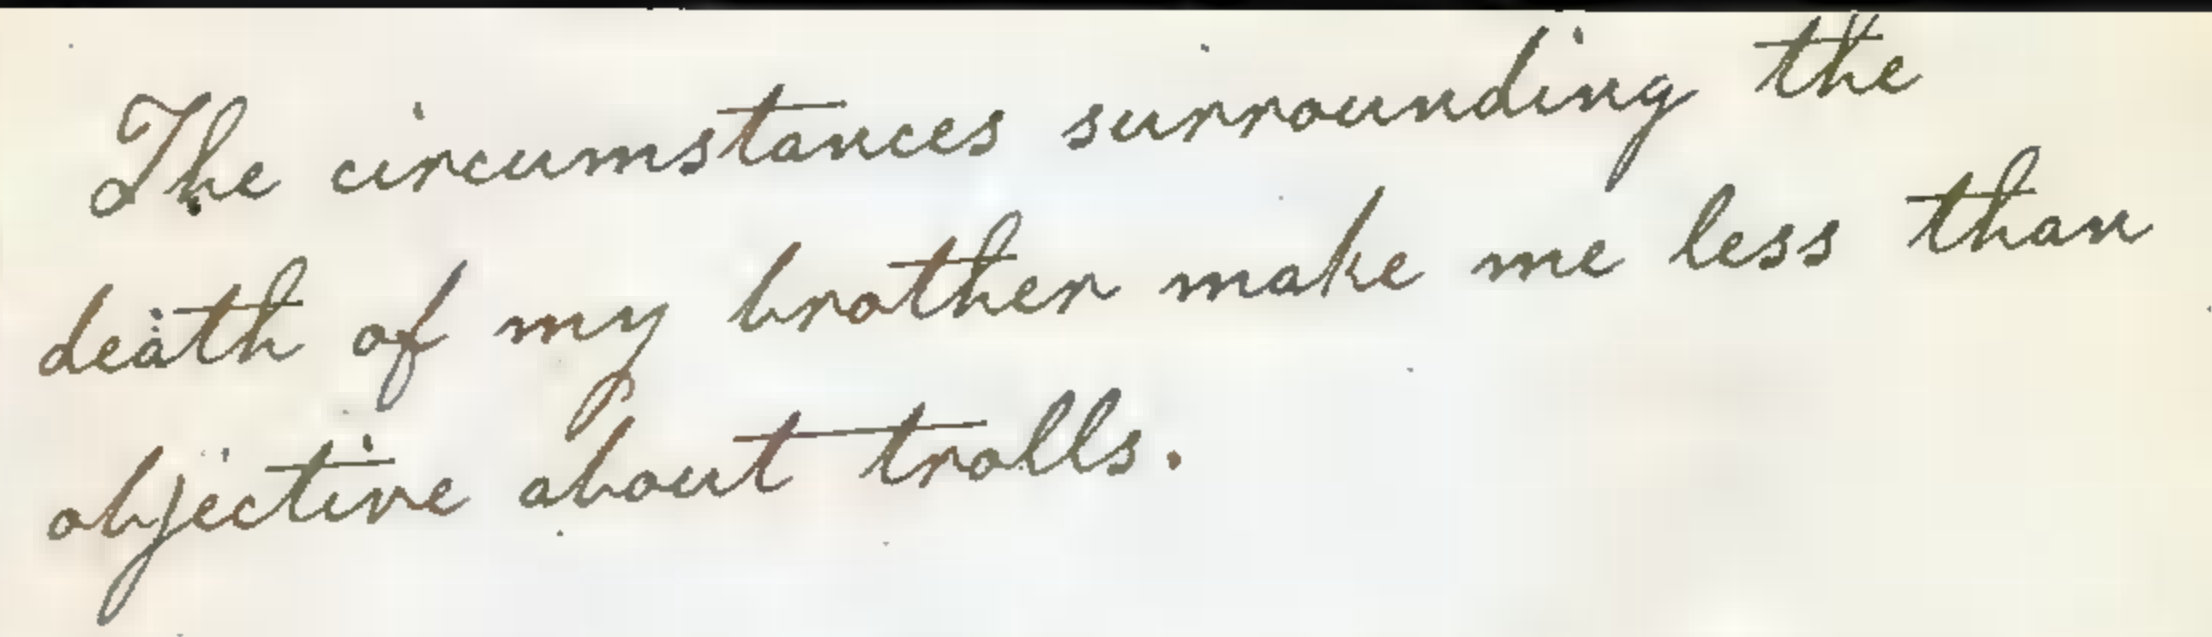 The circumstances surrounding the
death of my brother make me less than
objective about trolls.